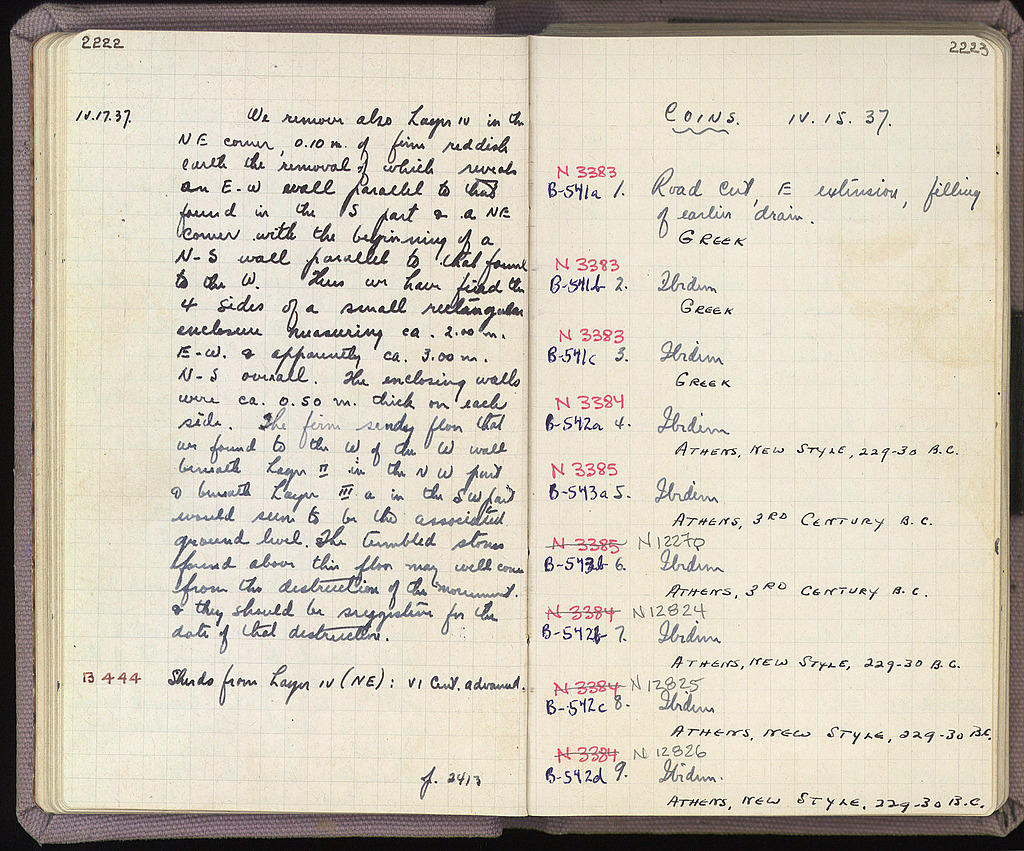 2222
IV.17.37. We remove also Layer IV in the
NE corner, 0.10 m. of firm reddish
earth the removal of which reveals
an E-W wall parallel to that
found in the S part & a NE
corner with the beginning of a
N-S wall parallel to that found
to the W. Thus we have fixed the
4 sides of a small rectangular
enclosure measuring ca. 2.00 m.
E-W. & apparently ca. 3.00 m.
N-S overall. The enclosing walls
were ca. 0.50 m. thick on each
side. The firm sandy floor that
we found to the W of the W wall
beneath Layer II in the NW part
& beneath Layer III a in the SW part
would seem to be the associated
ground level. The tumbled stones
found above this floor may well come
from the destruction of the monument.
& they should be suggestive for the
date of that destruction.
B 444 Sherds from Layer IV (NE): VI Cent. advanced.
p. 2413
2223
COINS. IV. 15. 37.
N 3383
B-541a 1. Road Cut, E extension, filling
of earlier drain.
GREEK
N 3383
B-541b 2. Ibidem
GREEK
N 3383
B-541c 3. Ibidem
GREEK
N 3384
B-542a 4. Ibidem
ATHENS, NEW STYLE, 229-30 B.C.
N 3385
B-543a 5. Ibidem
ATHENS, 3RD CENTURY B.C.
N 3385 N 12270
B-543b 6. Ibidem
ATHENS, 3RD CENTURY B.C.
N 3384 N 12824
B-542b 7. Ibidem
ATHENS, NEW STYLE, 229-30 B.C.
N 3384 N 12825
B-542c 8. Ibidem
ATHENS, NEW STYLE, 229-30 B.C.
N 3384 N 12826
B-542d 9. Ibidem.
ATHENS, NEW STYLE, 229-30 B.C.